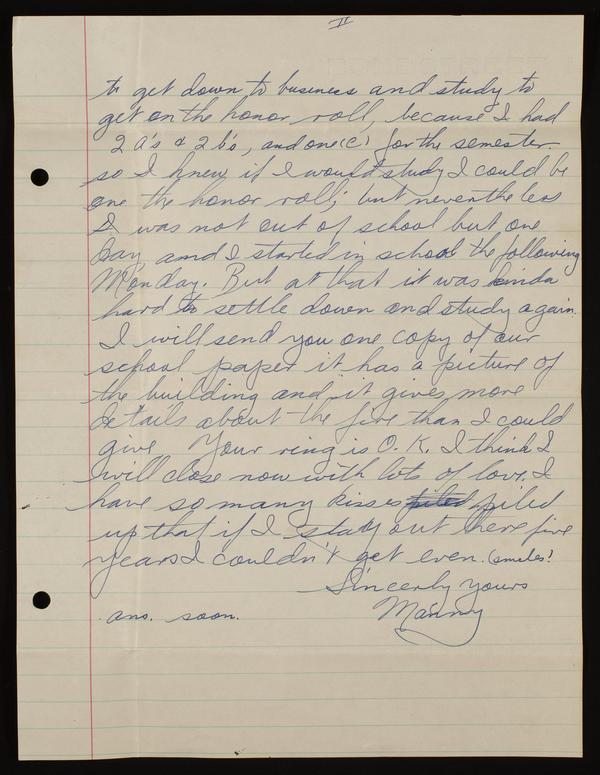 II
to get down to business and study to
get on the honor roll, because I had
2 a's & 2 b's, and one (c) for the semester
so I knew if I would study I could be
one the honor roll; but never the less
I was not out of school but one
day and I started in school the following
Monday. But at that it was kinda
hard to settle down and study again.
I will send you one copy of our
school paper it has a picture of
the building and it gives more
details about the fire than I could
give. Your ring is O.K. I think I
will close now with lots of love. I
have so many kisses piled
up that if I stay out there five
years I couldn't get even. (smiles!
Sincerly yours
ans. soon. Manny